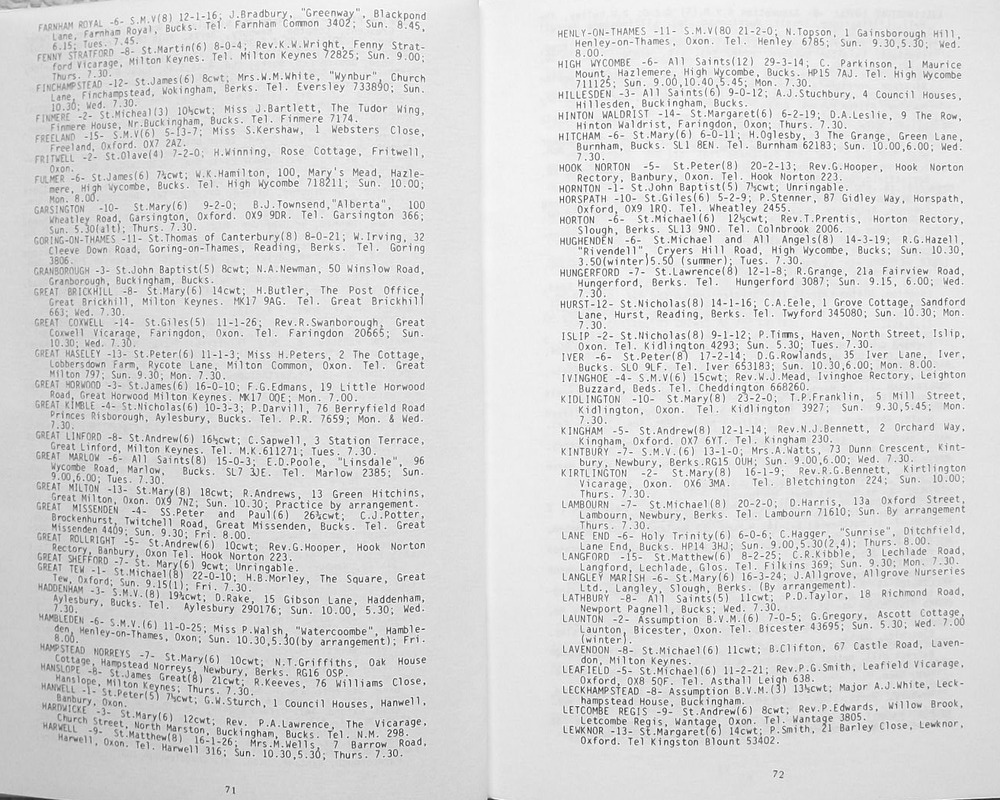 FARNHAM ROYAL -6- S.M.V(8) 12-1-16; J.Bradbury, "Greenway", Blackpond
Lane, Farnham Royal, Bucks. Tel. Farnham Common 3402; Sun. 8.45,
6.15; Tues. 7.45.
FENNY STRATFORD -8- St.Martin(6) 8-0-4; Rev.K.W.Wright, Fenny Strat-
ford Vicarage, Milton Keynes. Tel. Milton Keynes 72825; Sun. 9.00;
Thurs. 7.30.
FINCHAMPSTEAD -12- St.James(6) 8cwt; Mrs.W.M.White, "Wynbur", Church
Lane, Finchampstead, Wokingham, Berks. Tel. Eversley 733890; Sun.
10.30; Wed. 7.30.
FINMERE -2- St.Micheal(3) 10½cwt; Miss J.Bartlett, The Tudor Wing,
Finmere House, Nr.Buckingham, Bucks. Tel. Finmere 7174.
FREELAND -15- S.M.V(6) 5-13-7; Miss S.Kershaw, 1 Websters Close,
Freeland, Oxford. OX7 2AZ.
FRITWELL -2- St.Olave(4) 7-2-0; H.Winning, Rose Cottage, Fritwell,
Oxon.
FULMER -6- St.James(6) 7¼cwt; W.K.Hamilton, 100, Mary's Mead, Hazle-
mere, High Wycombe, Bucks. Tel. High Wycombe 718211; Sun. 10.00;
Mon. 8.00.
GARSINGTON -10- St.Mary(6) 9-2-0; B.J.Townsend,"Alberta", 100
Wheatley Road, Garsington, Oxford. OX9 9DR. Tel. Garsington 366;
Sun. 5.30(alt); Thurs. 7.30.
GORING-ON-THAMES -11- St.Thomas of Canterbury(8) 8-0-21; W.Irving, 32
Cleeve Down Road, Goring-on-Thames, Reading, Berks. Tel. Goring
3806.
GRANBOROUGH -3- St.John Baptist(5) 8cwt; N.A.Newman, 50 Winslow Road,
Granborough, Buckingham, Bucks.
GREAT BRICKHILL -8- St.Mary(6) 14cwt; H.Butler, The Post Office,
Great Brickhill, Milton Keynes. MK17 9AG. Tel. Great Brickhill
663; Wed. 7.30.
GREAT COXWELL -14- St.Giles(5) 11-1-26; Rev.R.Swanborough, Great
Coxwell Vicarage, Faringdon, Oxon. Tel. Faringdon 20665; Sun.
10.30; Wed. 7.30.
GREAT HASELEY -13- St.Peter(6) 11-1-3; Miss H.Peters, 2 The Cottage,
Lobbersdown Farm, Rycote Lane, Milton Common, Oxon. Tel. Great
Milton 797; Sun. 9.30; Mon. 7.30.
GREAT HORWOOD -3- St.James(6) 16-0-10; F.G.Edmans, 19 Little Horwood
Road, Great Horwood Milton Keynes. MK17 0QE; Mon. 7.00.
GREAT KIMBLE -4- St.Nicholas(6) 10-3-3; P.Darvill, 76 Berryfield Road
Princes Risborough, Aylesbury, Bucks. Tel. P.R. 7659; Mon. & Wed.
7.30.
GREAT LINFORD -8- St.Andrew(6) 16½cwt; C.Sapwell, 3 Station Terrace,
Great Linford, Milton Keynes. Tel. M.K.611271; Tues. 7.30.
GREAT MARLOW -6- All Saints(8) 15-0-3; E.D.Poole, "Linsdale", 96
Wycombe Road, Marlow, Bucks. SL7 3JE. Tel. Marlow 2385; Sun.
9.00,6.00; Tues. 7.30.
GREAT MILTON -13- St.Mary(8) 18cwt; R.Andrews, 13 Green Hitchins,
Great Milton, Oxon. OX9 7NZ; Sun. 10.30; Practice by arrangement.
GREAT MISSENDEN -4- SS.Peter and Paul(6) 26½cwt; C.J.Potter,
Brockenhurst, Twitchell Road, Great Missenden, Bucks. Tel. Great
Missenden 4409; Sun. 9.30; Fri. 8.00.
GREAT ROLLRIGHT -5- St.Andrew(6) 10cwt; Rev.G.Hooper, Hook Norton
Rectory, Banbury, Oxon Tel. Hook Norton 223.
GREAT SHEFFORD -7- St. Mary(6) 9cwt; Unringable.
GREAT TEW -1- St.Michael(8) 22-0-10; H.B.Morley, The Square, Great
Tew, Oxford; Sun. 9.15(1); Fri. 7.30.
HADDENHAM -3- S.M.V.(8) 19¼cwt; D.Rake, 15 Gibson Lane, Haddenham,
Aylesbury, Bucks. Tel. Aylesbury 290176; Sun. 10.00, 5.30; Wed.
7.30.
HAMBLEDEN -6- S.M.V.(6) 11-0-25; Miss P.Walsh, "Watercoombe", Hamble-
den, Henley-on-Thames, Oxon; Sun. 10.30,5.30(by arrangement); Fri.
8.00.
HAMPSTEAD NORREYS -7- St.Mary(6) 10cwt; N.T.Griffiths, Oak House
Cottage, Hampstead Norreys, Newbury, Berks. RG16 0SP.
HANSLOPE -8- St.James Great(8) 21cwt; R.Keeves, 76 Williams Close,
Hanslope, Milton Keynes; Thurs. 7.30.
HANWELL -1- St.Peter(5) 7½cwt; G.W.Sturch, 1 Council Houses, Hanwell,
Banbury, Oxon.
HARDWICKE -3- St.Mary(6) 12cwt; Rev. P.A.Lawrence, The Vicarage,
Church Street, North Marston, Buckingham, Bucks. Tel. N.M. 298.
HARWELL -9- St.Matthew(8) 16-1-26; Mrs.M.Wells, 7 Barrow Road,
Harwell, Oxon. Tel. Harwell 316; Sun. 10.30,5.30; Thurs. 7.30.
71
HENLY-ON-THAMES -11- S.M.V(80 21-2-0; N.Topson, 1 Gainsborough Hill,
Henley-on-Thames, Oxon. Tel. Henley 6785; Sun. 9.30,5.30; Wed.
8.00.
HIGH WYCOMBE -6- All Saints(12) 29-3-14; C. Parkinson, 1 Maurice
Mount, Hazlemere, High Wycombe, Bucks. HP15 7AJ. Tel. High Wycombe
711125; Sun. 9.00,10.40,5.45; Mon. 7.30.
HILLESDEN -3- All Saints(6) 9-0-12; A.J.Stuchbury, 4 Council Houses,
Hillesden, Buckingham, Bucks.
HINTON WALDRIST -14- St.Margaret(6) 6-2-19; D.A.Leslie, 9 The Row,
Hinton Waldrist, Faringdon, Oxon; Thurs. 7.30.
HITCHAM -6- St.Mary(6) 6-0-11; H.Oglesby, 3 The Grange, Green Lane,
Burnham, Bucks. SL1 8EN. Tel. Burnham 62183; Sun. 10.00,6.00; Wed.
7.30.
HOOK NORTON -5- St.Peter(8) 20-2-13; Rev.G.Hooper, Hook Norton
Rectory, Banbury, Oxon. Tel. Hook Norton 223.
HORNTON -1- St.John Baptist(5) 7½cwt; Unringable.
HORSPATH -10- St.Giles(6) 5-2-9; P.Stenner, 87 Gidley Way, Horspath,
Oxford, OX9 1RQ. Tel. Wheatley 2455.
HORTON -6- St.Michael(6) 12½cwt; Rev.T.Prentis, Horton Rectory,
Slough, Berks. SL13 9NO. Tel. Colnbrook 2006.
HUGHENDEN -6- St.Michael and All Angels(8) 14-3-19; R.G.Hazell,
"Rivendell", Cryers Hill Road, High Wycombe, Bucks; Sun. 10.30,
3.50(winter)5.50 (summer); Tues. 7.30.
HUNGERFORD -7- St.Lawrence(8) 12-1-8; R.Grange, 21a Fairview Road,
Hungerford, Berks. Tel. Hungerford 3087; Sun. 9.15, 6.00; Wed.
7.30.
HURST-12- St.Nicholas(8) 14-1-16; C.A.Eele, 1 Grove Cottage, Sandford
Lane, Hurst, Reading, Berks. Tel. Twyford 345080; Sun. 10.30; Mon.
7.30.
ISLIP -2- St.Nicholas(8) 9-1-12; P.Timms, Haven, North Street, Islip,
Oxon. Tel. Kidlington 4293; Sun. 5.30; Tues. 7.30.
IVER -6- St.Peter(8) 17-2-14; D.G.Rowlands, 35 Iver Lane, Iver,
Bucks. SL0 9LF. Tel. Iver 653183; Sun. 10.30,6.00; Mon. 8.00.
IVINGHOE -4- S.M.V(6) 15cwt; Rev.W.J.Mead, Ivinghoe Rectory, Leighton
Buzzard, Beds. Tel. Cheddington 668260.
KIDLINGTON -10- St.Mary(8) 23-2-0; T.P.Franklin, 5 Mill Street,
Kidlington, Oxon. Tel. Kidlington 3927; Sun. 9.30,5.45; Mon.
7.30.
KINGHAM -5- St.Andrew(8) 12-1-14; Rev.N.J.Bennett, 2 Orchard Way,
Kingham, Oxford. OX7 6YT. Tel. Kingham 230.
KINTBURY -7- S.M.V.(6) 13-1-0; Mrs.A.Watts, 73 Dunn Crescent, Kint-
bury, Newbury, Berks.RG15 0UH; Sun. 9.00,6.00; Wed. 7.30.
KIRTLINGTON -2- St.Mary(8) 16-1-9; Rev.R.G.Bennett, Kirtlington
Vicarage, Oxon. OX6 3MA. Tel. Bletchington 224; Sun. 10.00;
Thurs. 7.30.
LAMBOURN -7- St.Michael(8) 20-2-0; D.Harris, 13a Oxford Street,
Lambourn, Newbury, Berks. Tel. Lambourn 71610; Sun. By arrangement
Thurs. 7.30.
LANE END -6- Holy Trinity(6) 6-0-6; C.Hagger, "Sunrise", Ditchfield,
Lane End, Bucks. HP14 3HJ; Sun. 9.00,5.30(2,4); Thurs. 8.00.
LANGFORD -15- St.Matthew(6) 8-2-25; C.R.Kibble, 3 Lechlade Road,
Langford, Lechlade, Glos. Tel. Filkins 369; Sun. 9.30; Mon. 7.30.
LANGLEY MARISH -6- St.Mary(6) 16-3-24; J.Allgrove, Allgrove Nurseries
Ltd., Langley, Slough, Berks. (By arrangement).
LATHBURY -8- All Saints(5) 11cwt; P.D.Taylor, 18 Richmond Road,
Newport Pagnell, Bucks; Wed. 7.30.
LAUNTON -2- Assumption B.V.M.(6) 7-0-5; G.Gregory, Ascott Cottage,
Launton, Bicester, Oxon. Tel. Bicester 43695; Sun. 5.30; Wed. 7.00
(winter).
LAVENDON -8- St.Michael(6) 11cwt; B.Clifton, 67 Castle Road, Laven-
don, Milton Keynes.
LEAFIELD -5- St.Michael(6) 11-2-21; Rev.P.G.Smith, Leafield Vicarage,
Oxford, OX8 5QF. Tel. Asthall Leigh 638.
LECKHAMPSTEAD -8- Assumption B.V.M.(3) 13½cwt; Major A.J.White, Leck-
hampstead House, Buckingham.
LETCOMBE REGIS -9- St.Andrew(6) 8cwt; Rev.P.Edwards, Willow Brook,
Letcombe Regis, Wantage, Oxon. Tel. Wantage 3805.
LEWKNOR -13- St.Margaret(6) 14cwt; P.Smith, 21 Barley Close, Lewknor,
Oxford. Tel Kingston Blount 53402.
72